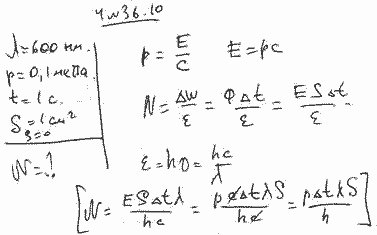 Ч w36.10
λ=600 нм.
p=0,1 мкПа
t=1 с.
S=1 см²
ρ=0
N=?
p = E/c  E=pc
N = ΔW/ε = ΦΔt/ε = ESΔt/ε
ε=hυ = hc/λ
[N = ESΔtλ/hc = pcΔtλS/hc = pΔtλS/h]